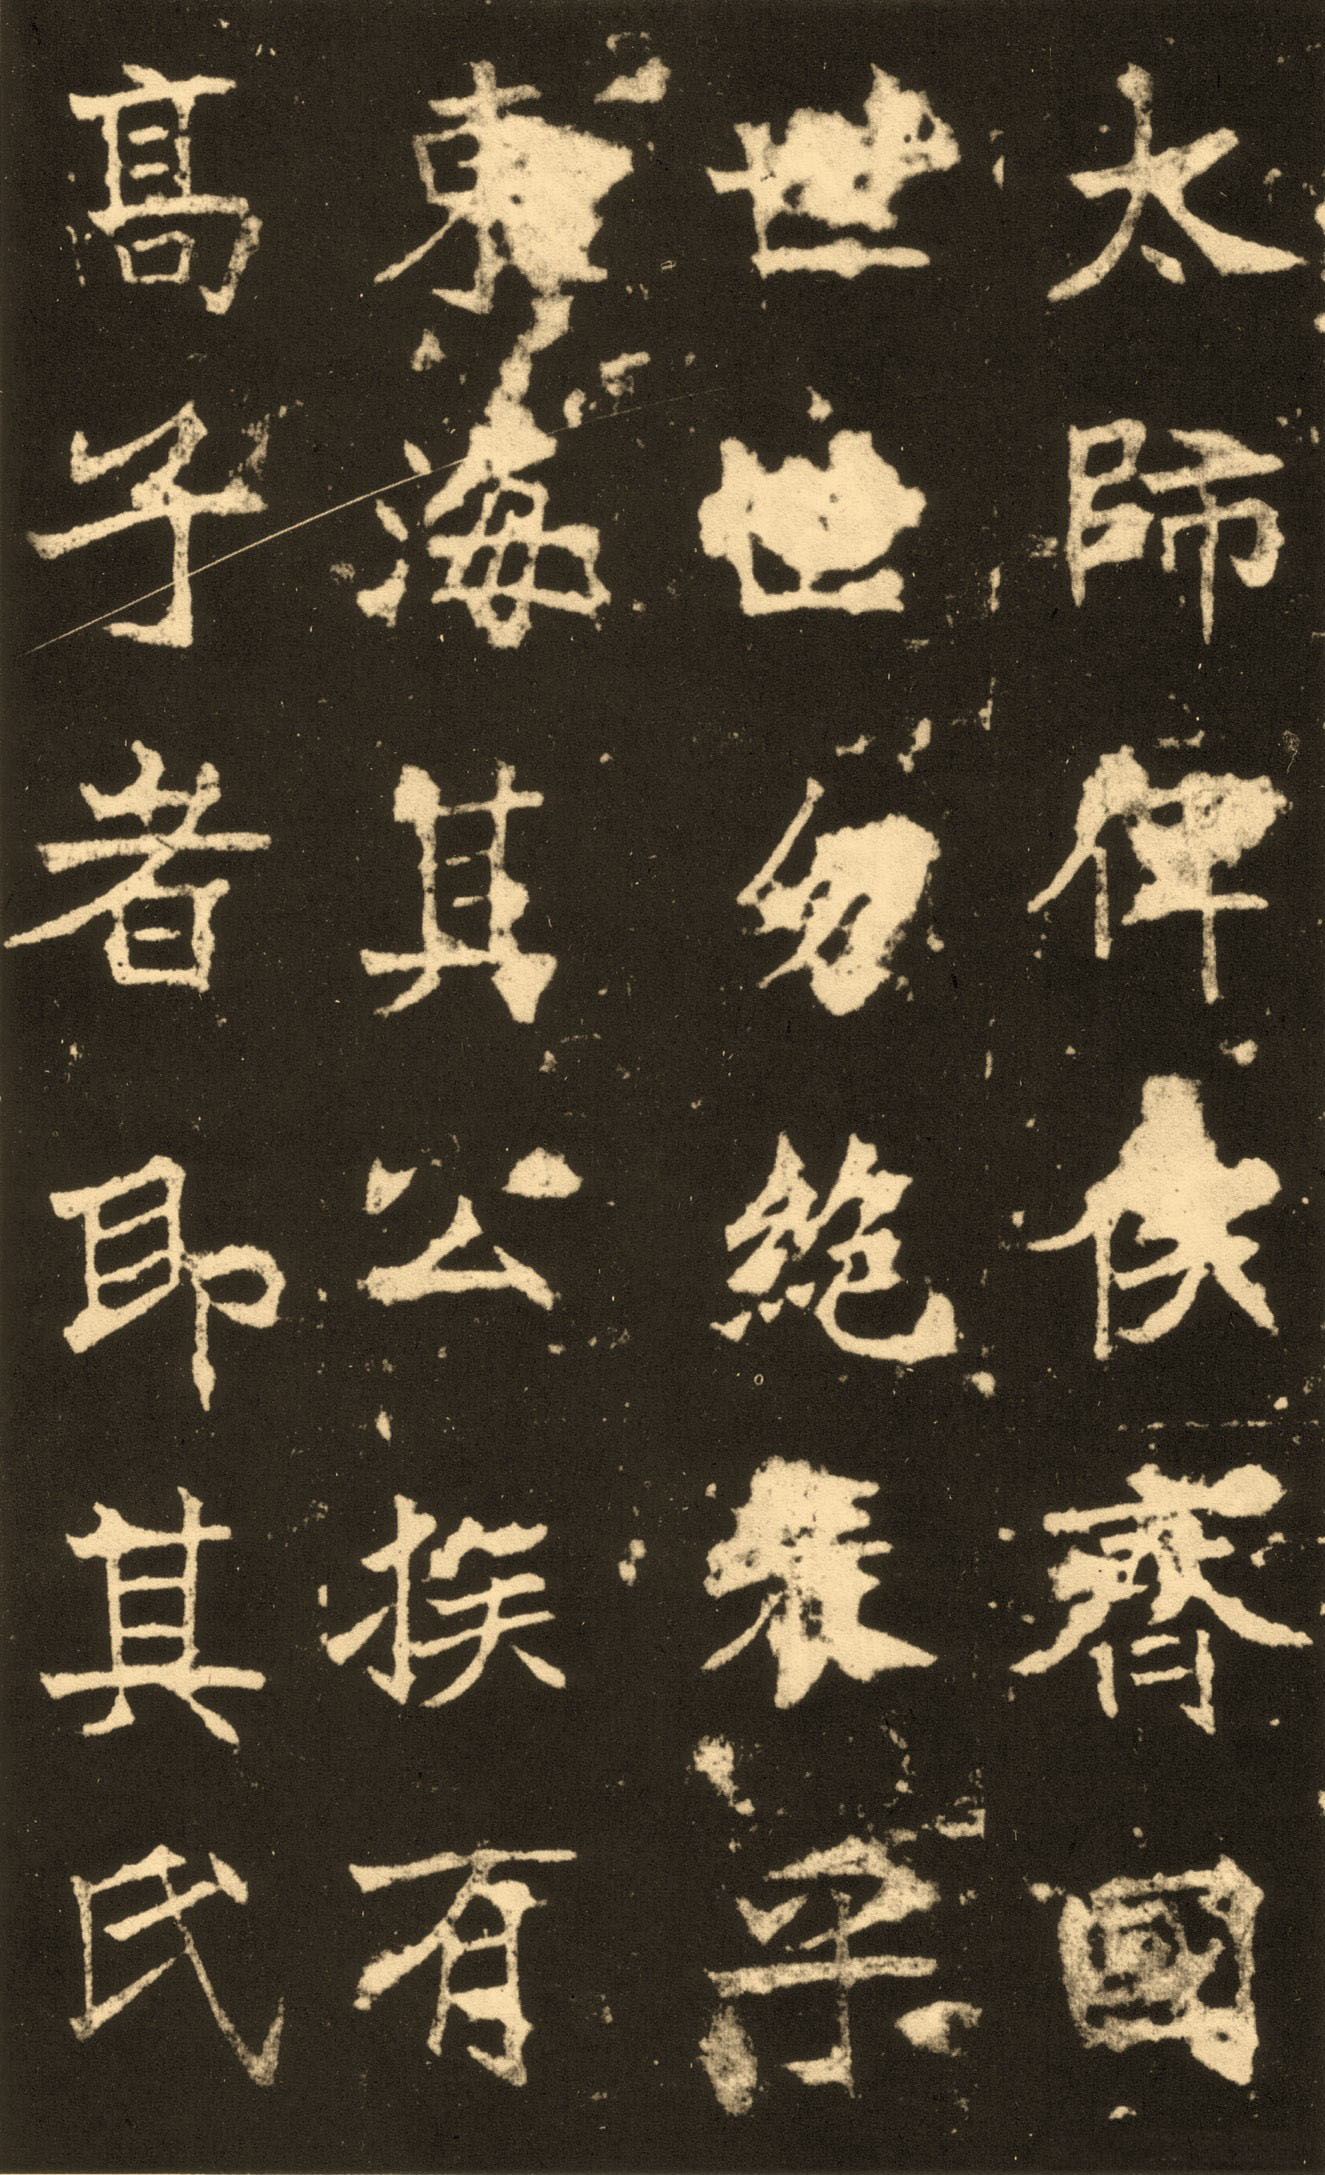 太師俾侯齊國
世世勿絶表乎
東海其公族有
高子者即其氏